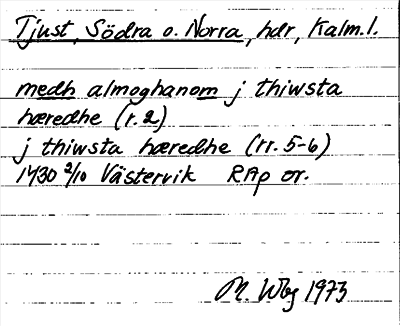 Tjust, Södra o. Norra, hdr, Kalm. l.
medh almoghanom j thiwsta
hæredhe (r. 2)
j thiwsta hæredhe (rr. 5-6)
1430 2/10 Västervik RAp or.
M. Wbg 1973